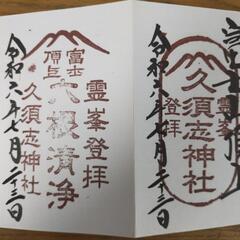 霊峯
久須志神社
登拝
令和六年七月二十三日
霊峯登拝
富士
頂上
六根清浄
久須志神社
令和六年七月二十三日